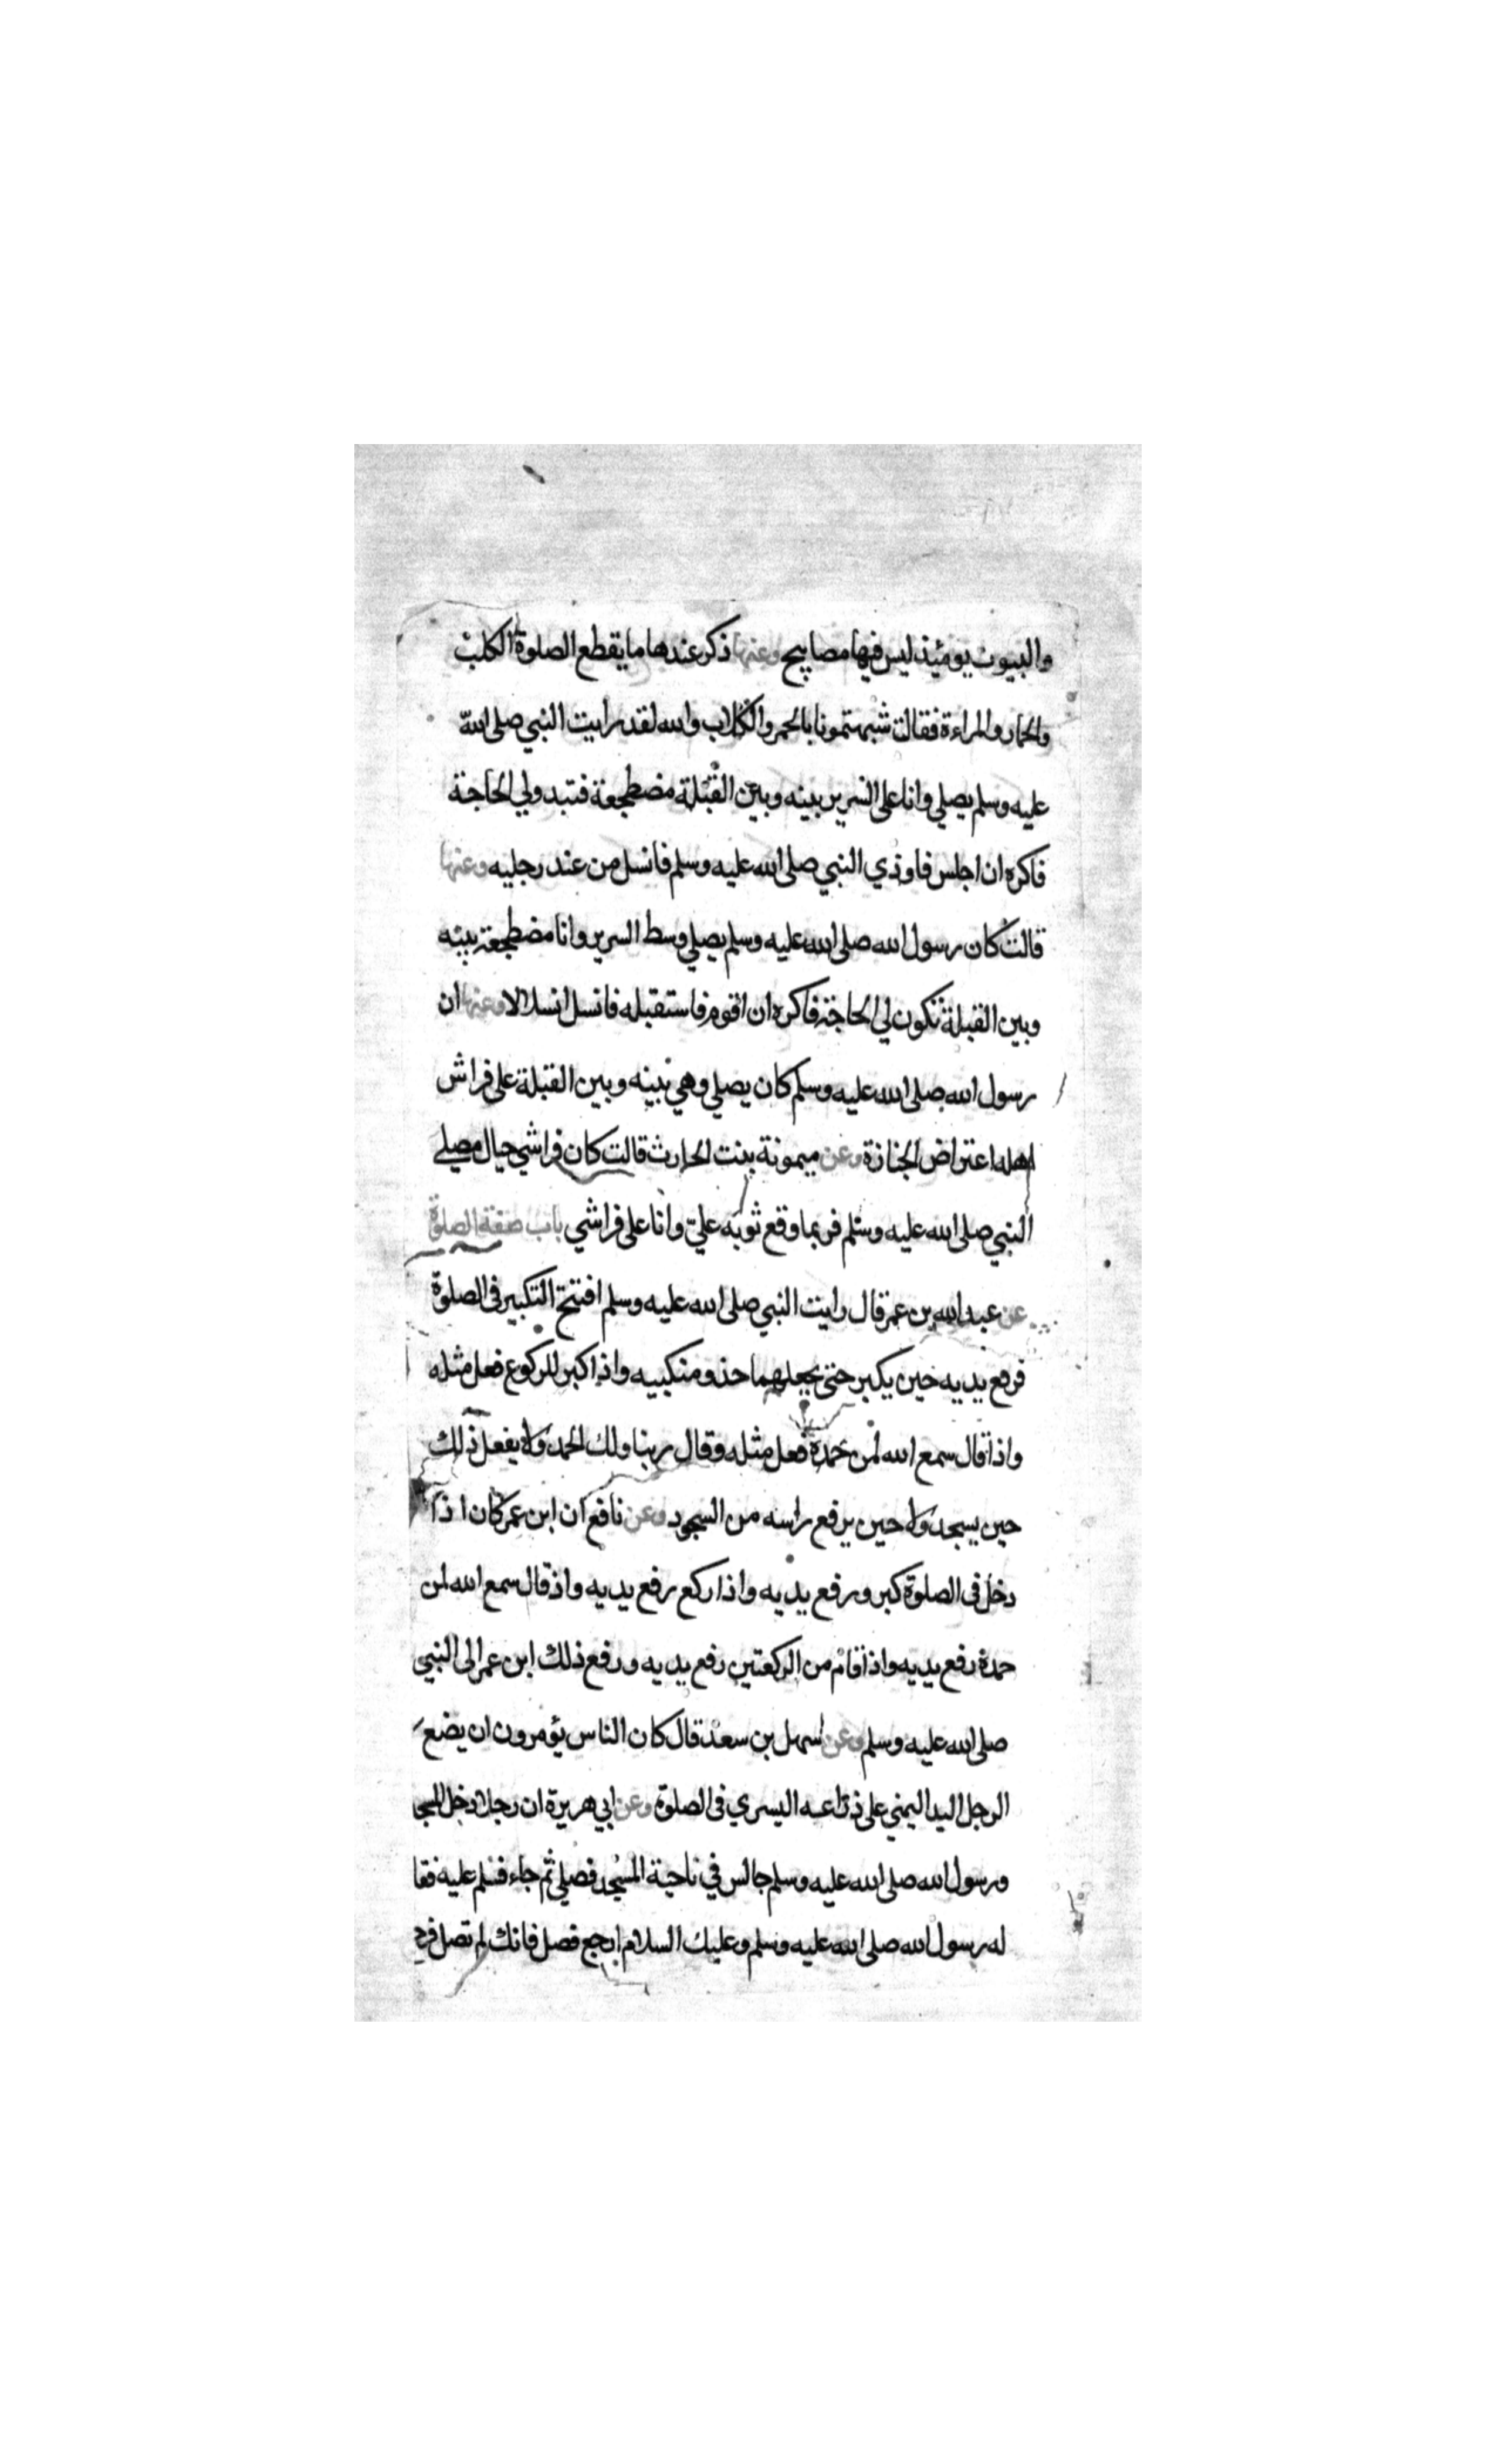 والبيوت يومئذ ليس فيها مصابيح وعنها ذكر عندها ما يقطع الصلوة الكلب
والحمار والمراءة فقالت شبهتمونا بالحمر والكلاب والله لقد رايت النبي صلى الله
عليه وسلم يصلي وانا على السرير بينه وبين القبلة مضطجعة فتبدو لي الحاجة
فاكره ان اجلس فاوذي النبي صلى الله عليه وسلم فانسل من عند رجليه وعنها
قالت كان رسول الله صلى الله عليه وسلم يصلي وسط السرير وانا مضطجعة بينه
وبين القبلة تكون لي الحاجة فاكره ان اقوم فاستقبله فانسل انسلالا وعنها ان
رسول الله صلى الله عليه وسلم كان يصلي وهي بينه وبين القبلة على فراش
اهله اعتراض الجنازة وعن ميمونة بنت الحارث قالت كان فراشي حيال مصلى
النبي صلى الله عليه وسلم فربما وقع ثوبه علي وانا على فراشي باب صفة الصلوة
عن عبد الله بن عمر قال رايت النبي صلى الله عليه وسلم افتتح التكبير في الصلوة
فرفع يديه حين يكبر حتى يجعلهما حذو منكبيه واذا كبر للركوع فعل مثله
واذا قال سمع الله لمن حمده فعل مثله وقال ربنا ولك الحمد ولا يفعل ذلك
حين يسجد ولا حين يرفع راسه من السجود وعن نافع ان ابن عمر كان اذا
دخل في الصلوة كبر ورفع يديه واذا ركع رفع يديه واذ قال سمع الله لمن
حمدة رفع يديه واذا قام من الركعتين رفع يديه ورفع ذلك ابن عمر الى النبي
صلى الله عليه وسلم وعن سهل بن سعد قال كان الناس يؤمرون ان يضع
الرجل اليد اليمني على ذراعه اليسري في الصلوة وعن ابي هريرة ان رجلا دخل المسجد
ورسول الله صلى الله عليه وسلم جالس في ناحية المسجد فصلي ثم جاء فسلم عليه فقا
له رسول الله صلى الله عليه وسلم وعليك السلام ارجع فصل فانك لم تصل فرج